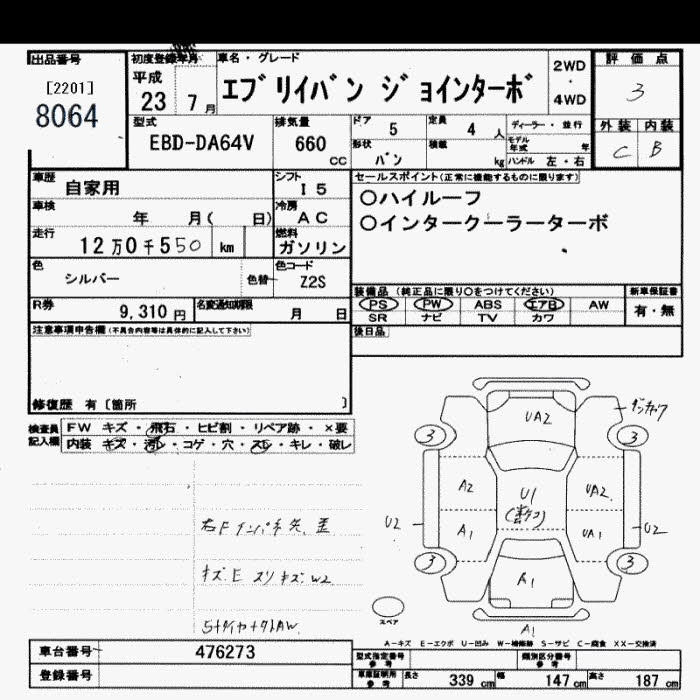 出品番号
[2201]
8064
初度登録年月
平成
23 7月
車名・グレード
エブリイバン ジョインターボ
2WD
・
4WD
評価点
3
型式
EBD-DA64V
排気量
660
CC
ドア 5
定員 4 人
ディーラー・並行
形状 バン
積載 kg
モデル年式 年
ハンドル 左・右
外装 内装
C B
車歴 自家用
シフト I5
セールスポイント(正常に機能するものに限ります)
○ハイルーフ
○インタークーラーターボ
車検 年 月( 日)
冷房 AC
走行 12万0千550 km
燃料 ガソリン
色 シルバー
色替
色コード Z2S
装備品 (純正品に限り○をつけてください)
新車保証書
PS PW ABS エアB AW
有・無
SR ナビ TV カワ
R券 9,310円
名変通知期限 月 日
後日品
注意事項申告欄(不具合内容等は具体的に記入して下さい)
修復歴 有〔箇所 〕
検査員記入欄
FW キズ・飛石・ヒビ割・リペア跡・×要
内装 キズ・汚レ・コゲ・穴・スレ・キレ・破レ
UA2
3 3
A2 U1 UA2
U2 U2
A1 UA1
3 3
A1
スペア
A1
A-キズ E-エクボ U-凹み W-補修跡 S-サビ C-腐食 XX-交換済
車台番号 476273
登録番号
型式指定番号
参考
類別区分番号
参考
車庫証明用
参考
長さ 339 cm 幅 147 cm 高さ 187 cm